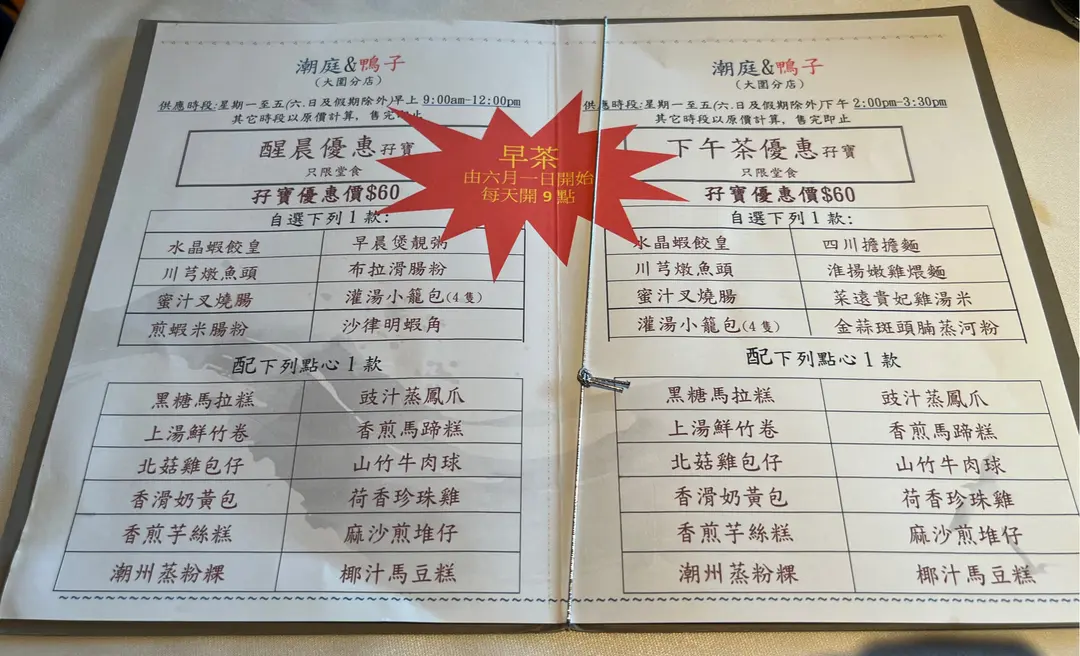 潮庭&鴨子
(大圍分店)
供應時段:星期一至五(六、日及假期除外)早上 9:00am-12:00pm
其它時段以原價計算, 售完即止
醒晨優惠孖寶
只限堂食
孖寶優惠價$60
自選下列1款:
水晶蝦餃皇 早晨煲靚粥
川芎燉魚頭 布拉滑腸粉
蜜汁叉燒腸 灌湯小籠包(4隻)
煎蝦米腸粉 沙律明蝦角
配下列點心1款
黑糖馬拉糕 豉汁蒸鳳爪
上湯鮮竹卷 香煎馬蹄糕
北菇雞包仔 山竹牛肉球
香滑奶黃包 荷香珍珠雞
香煎芋絲糕 麻沙煎堆仔
潮州蒸粉粿 椰汁馬豆糕
早茶
由六月一日開始
每天開9點
潮庭&鴨子
(大圍分店)
供應時段:星期一至五(六、日及假期除外)下午 2:00pm-3:30pm
其它時段以原價計算, 售完即止
下午茶優惠孖寶
只限堂食
孖寶優惠價$60
自選下列1款:
水晶蝦餃皇 四川擔擔麵
川芎燉魚頭 淮揚嫩雞煨麵
蜜汁叉燒腸 菜遠貴妃雞湯米
灌湯小籠包(4隻) 金蒜斑頭腩蒸河粉
配下列點心1款
黑糖馬拉糕 豉汁蒸鳳爪
上湯鮮竹卷 香煎馬蹄糕
北菇雞包仔 山竹牛肉球
香滑奶黃包 荷香珍珠雞
香煎芋絲糕 麻沙煎堆仔
潮州蒸粉粿 椰汁馬豆糕